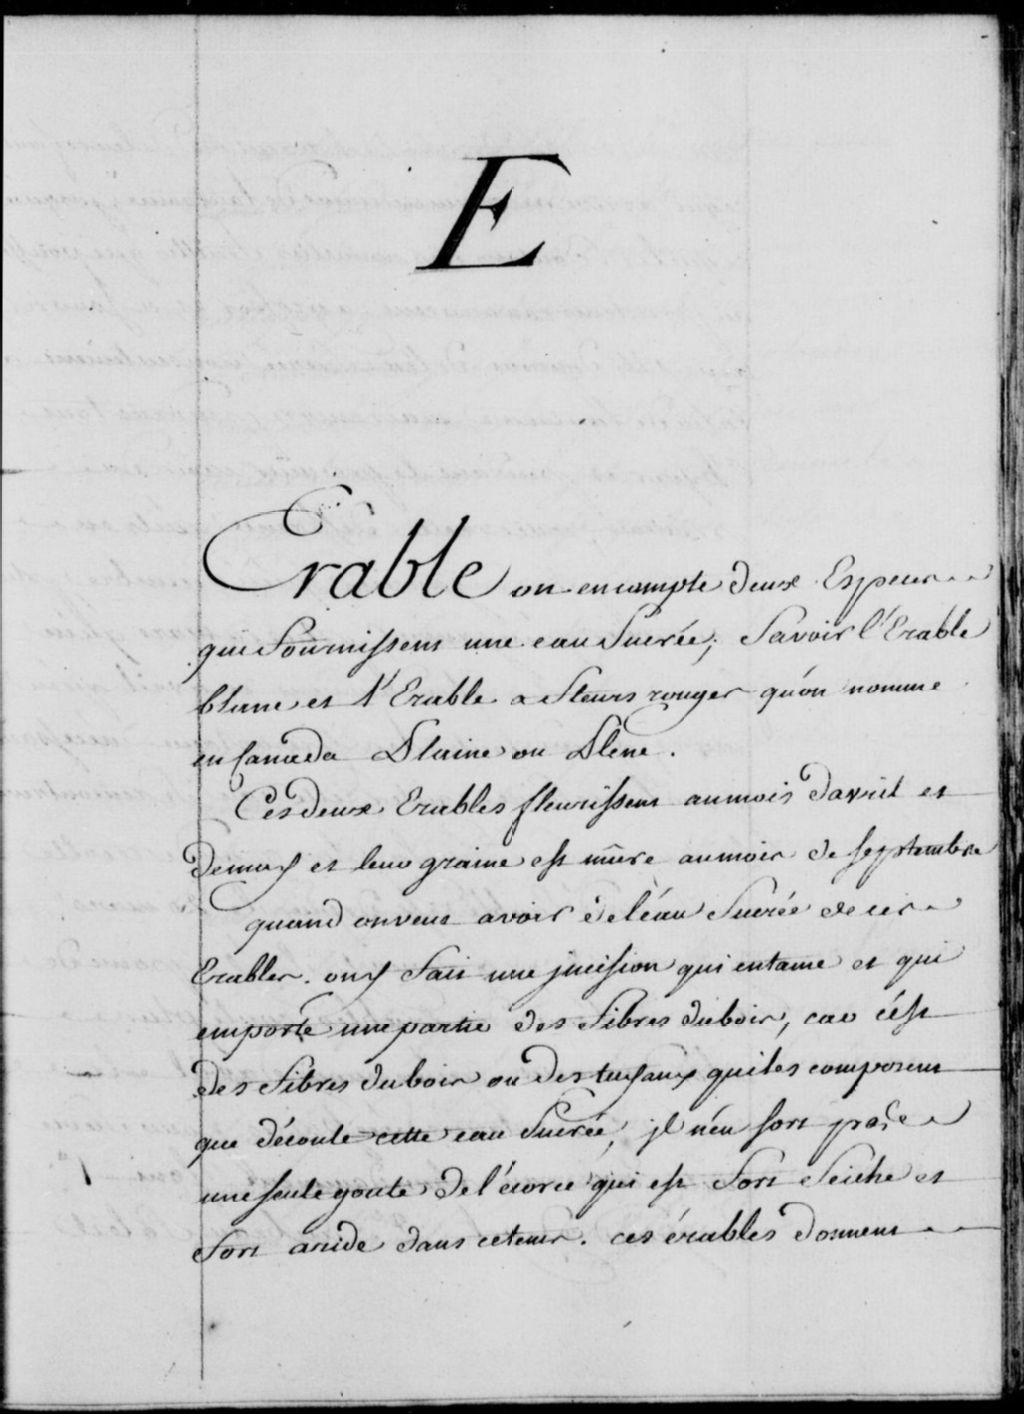 E
Erable on en compte deux Especes
qui Fournissent une eau Sucrée; Savoir l'Erable
blanc et l'Erable a fleurs rouges qu'on nomme
en Canada Plaine ou Plene.
Ces deux Erables fleurissent au mois d'avril et
de may et leur graine est mûre au mois de septembre
quand on veut avoir de l'éau Sucrée de ces
Erables. on y Fait une jncision qui entame et qui
emporte une partie des Fibres du bois, car c'ést
des Fibres du bois ou des tuyaux qui les composent
que découle cette eau Sucrée; jl n'en sort pas
une seule goute de l'écorce qui est Fort Seiche et
Fort aride dans ce tems. ces érables donnent